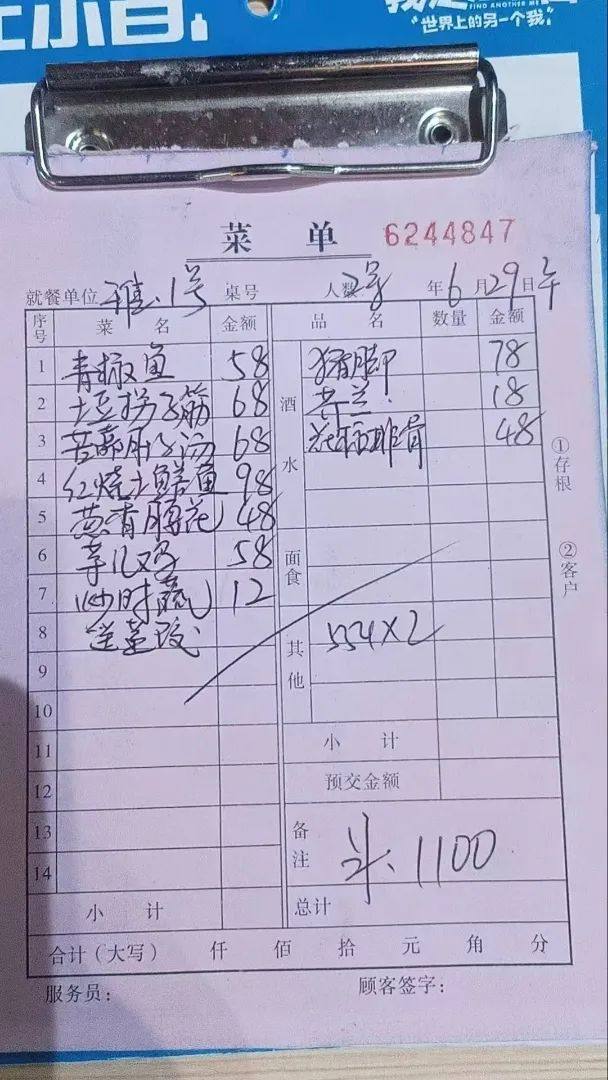 FIND ANOTHER ME
"世界上的另一个我"
菜 单 6244847
就餐单位 雅.1号 桌号 人数 2号 年 6 月 29 日 午
序号 菜 名 金额 品 名 数量 金额
1 青椒鱼 58 酒水 猪脚 78
2 土豆拐子筋 68 芥兰. 18
3 68 排骨 48
4 红烧土鳝鱼 98
5 葱香腰花 48
6 58 面食
7 炒时蔬 12
8 送 其他 554×2
9
10
11 小 计
12 预交金额
13 备注 斗、1100
14
小 计 总计
合计（大写） 仟 佰 拾 元 角 分
服务员： 顾客签字：
①存根
②客户